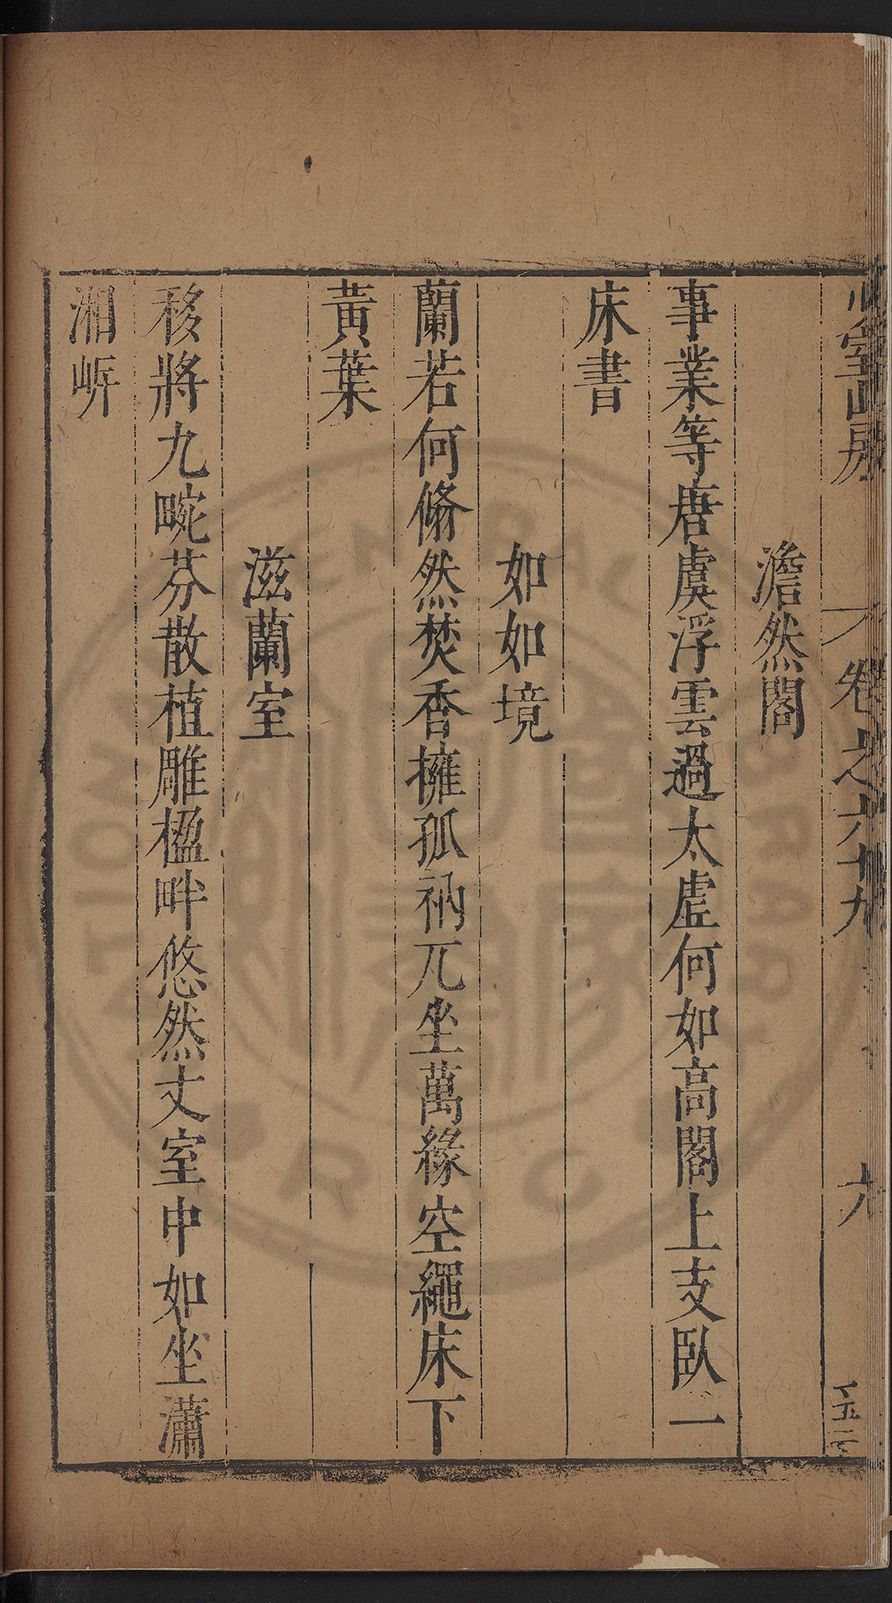 澹然閣
事業等唐虞浮雲過太虛何如高閣上支臥一
床書
如如境
蘭若何翛然焚香擁孤衲兀坐萬緣空繩床下
黃葉
滋蘭室
移將九畹芬散植雕楹畔悠然丈室中如坐瀟
湘㟁
卷之六十九
六